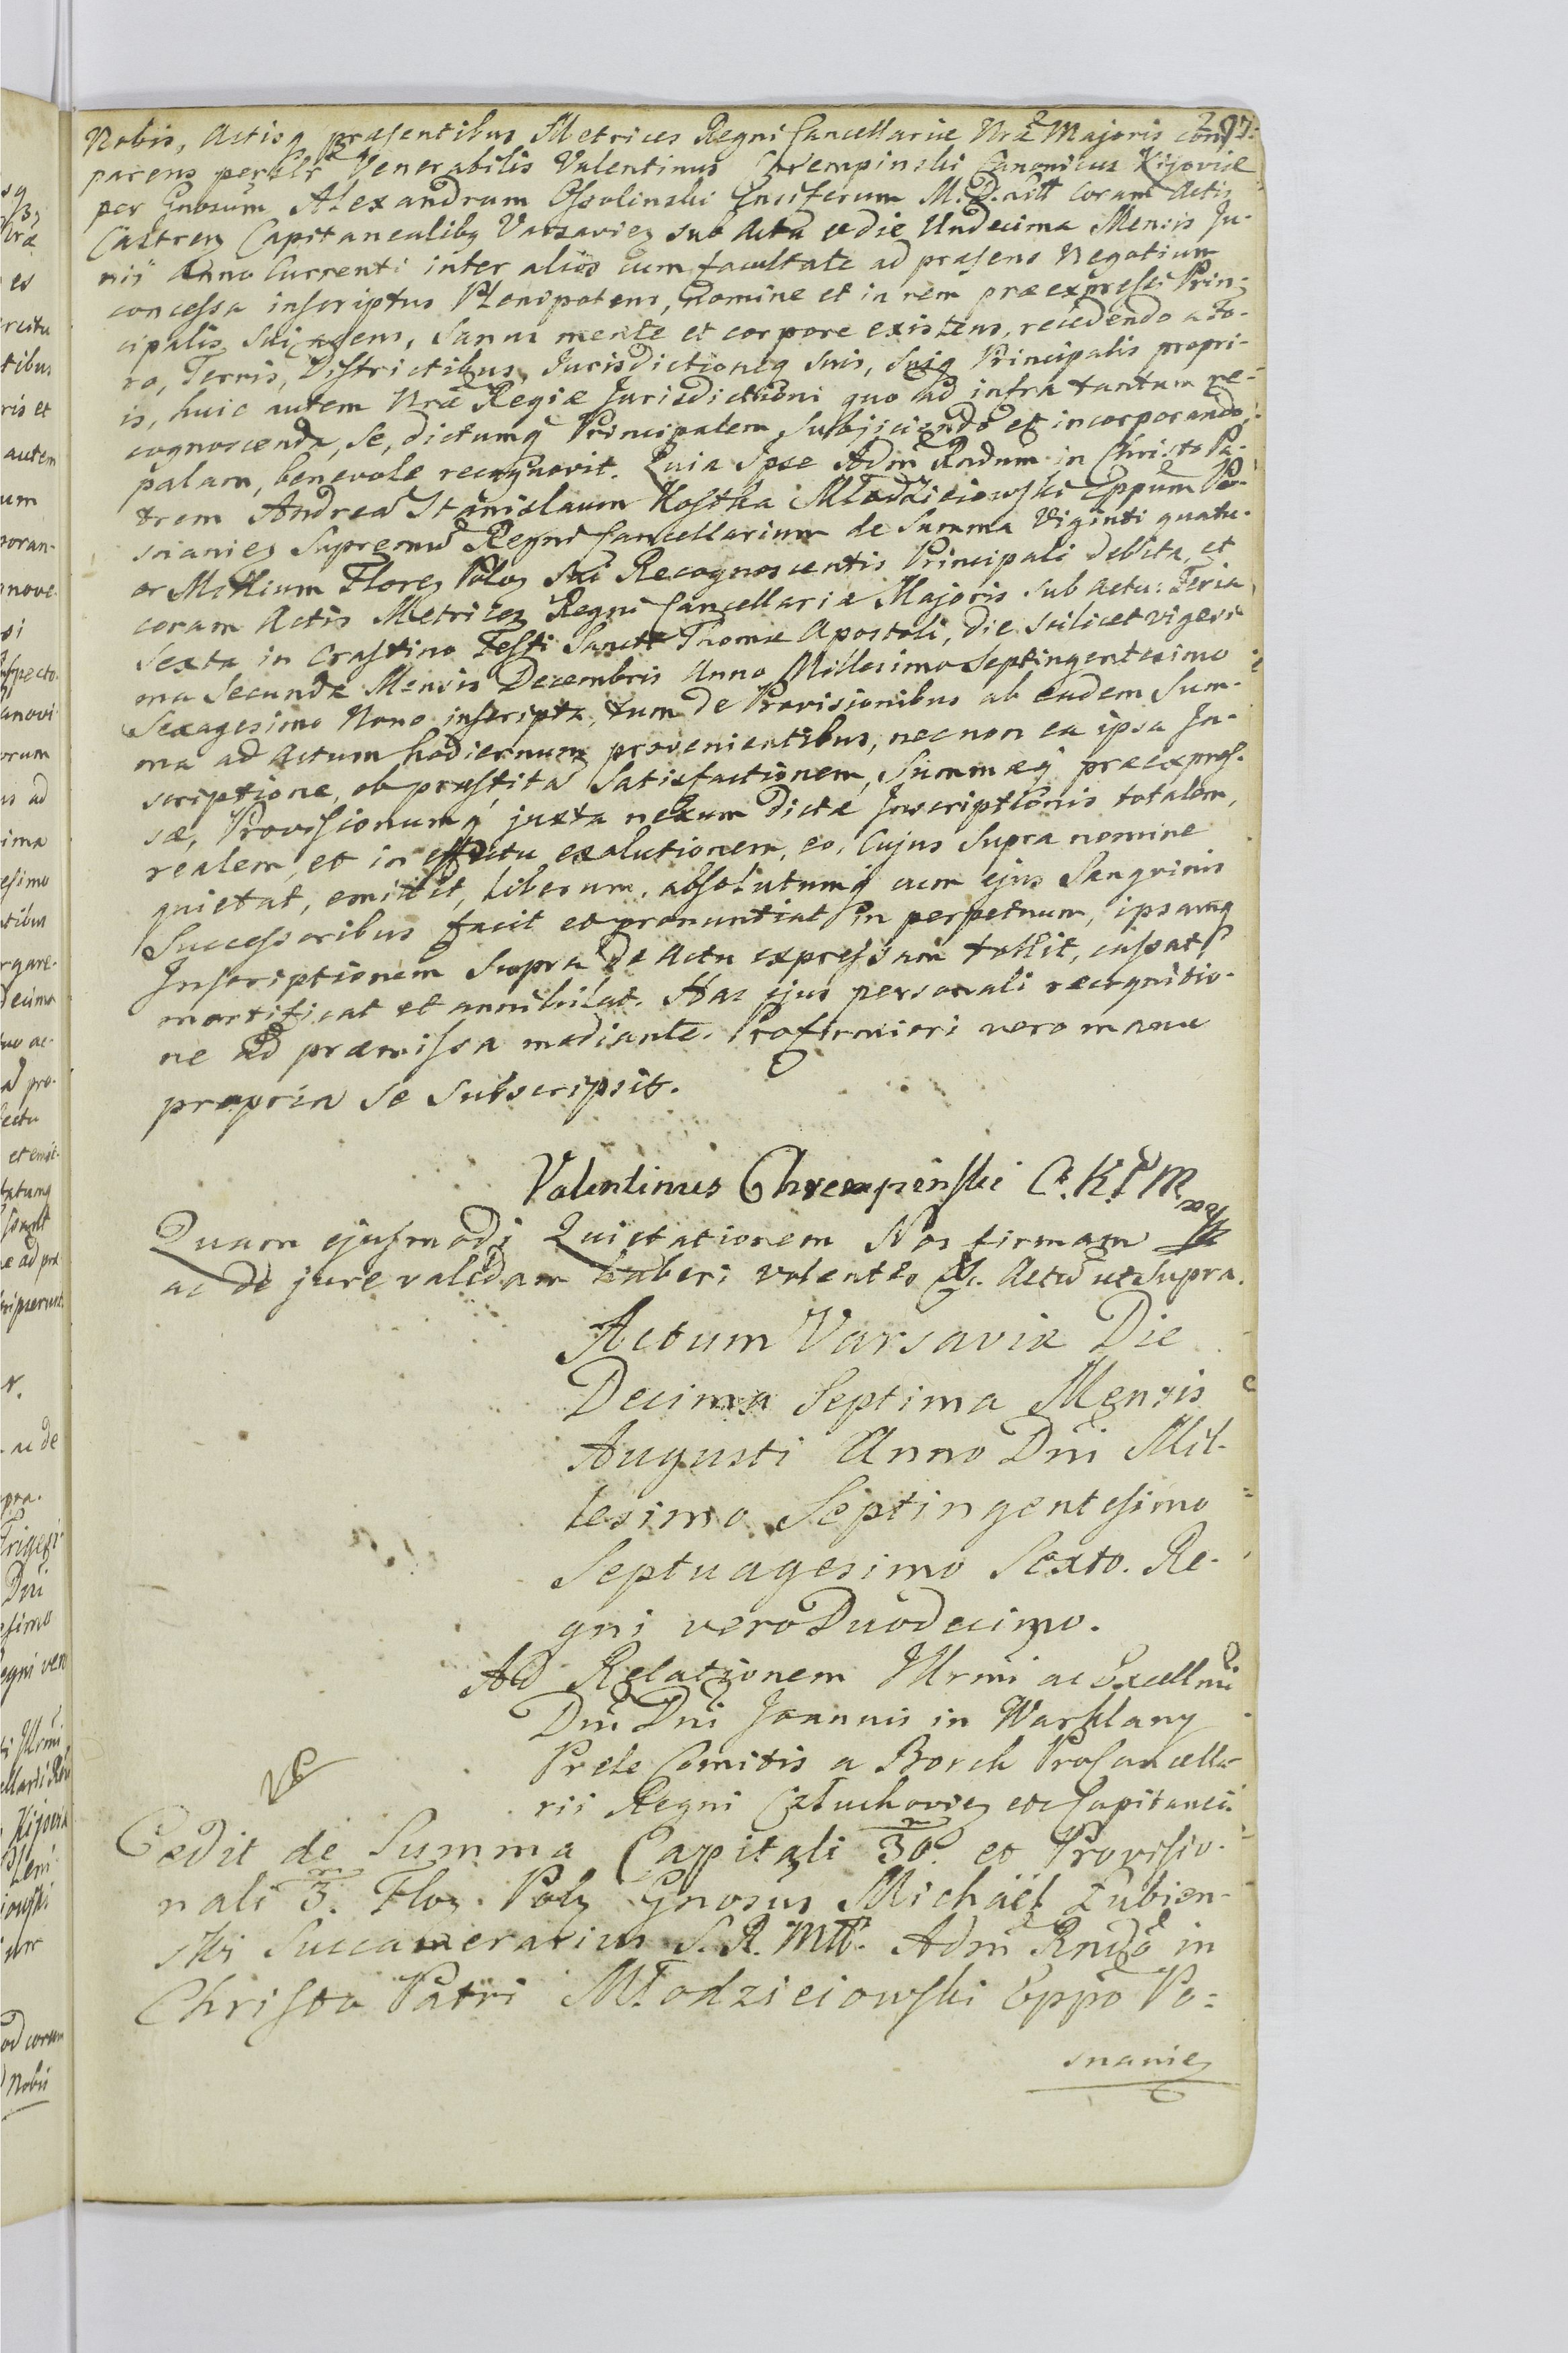 297.
Nobis, Actisq præsentibus Metrices Regni Cancellariæ Nræ Majoris com-
parens perillr Venerabilis Valentinus Chrempinski Canonicus Kijoviæ
per Gnosum Alexandrum Ossolinski Ensiferum M. D. Litt coram Actis
Castren Capitanealibq Varsavien sub Actu edie Undecima Mensis Ju-
nii Anno Currenti inter alios cum facultate ad præsens Negotium
concessa inscriptus Plenipotens, Nomine et in rem præexpressi Prin-
cipalis Sui agens, Sanus mente et corpore existens, recedendo a Fo-
ro, Terris, Districtibus, Jurisdictioneq Suis, Suiq Principalis propri-
is, huic autem Nræ Regiæ Jurisdictioni quo ad infra tantum re-
cognoscenda, Se, dictumq Principalem Subjiciendo et incorporando,
palam, benevole recognovit. Quia Ipse Adm Rndum in Christo Pa-
trem Andream Stanislaum Kostka Młodzieiowski Eppum Po-
snanien Supremum Regni Cancellarium de Summa Viginti quatu-
or Millium Floren Polon Sui Recognoscentis Principali debita, et
coram Actis Metrices Regni Cancellariæ Majoris Sub Actu: Feria
Sexta in Crastino Festi Sancti Thomæ Apostoli, die scilicet vigesi
ma Secunda Mensis Decembris Anno Millesimo Septingentesimo
Sexagesimo Nono inscripta, tum de Provisionibus ab eadem Sum-
ma ad Actum hodiernum provenientibus, nec non ea ipsa In-
scriptione, ob præstitam Satisfactionem, Summæq præexpres-
sæ, Provisionumq juxta nexum dictæ Inscriptionis totalem,
realem, et in effectu exolutionem, eo, Cujus Supra nomine
quietat, emittit, liberum, absolutumq cum ejus Sangvinis
Successoribus facit et pronuntiat in perpetuum, ipsamq
Inscriptionem Supra de Actu expressam tollit, cassat,
mortificat et annihilat. Hac ejus personali recognitio-
ne ad præmissa mediante. Pro firmiori vero manu
propria se Subscripsit.
Valentinus Chrempinski C. K. P. M.
Quam ejusmodi Quietationem Nos firmam
ac de jure validam haberi volentes &c. Actu ut Supra.
Actum Varsaviæ Die
Decima Septima Mensis
Augusti Anno Dni Mil-
lesimo Septingentesimo
Septuagesimo Sexto. Re-
gni vero Duodecimo.
Ad Relationem Illrmi ac Excellmi
Dni Dni Joannis in Warklany
Prele Comitis a Borch ProCancella-
rii Regni Człuchovien etc Capitanei.
Cedit de Summa Capitali 30. et Provisio-
nali 3. Flon. Poln Gnosus Michael Łubien-
ski Succamerarius S. R. Mtt. Adm Rndo in
Christo Patri Młodzieiowski Eppo Po-
snanien